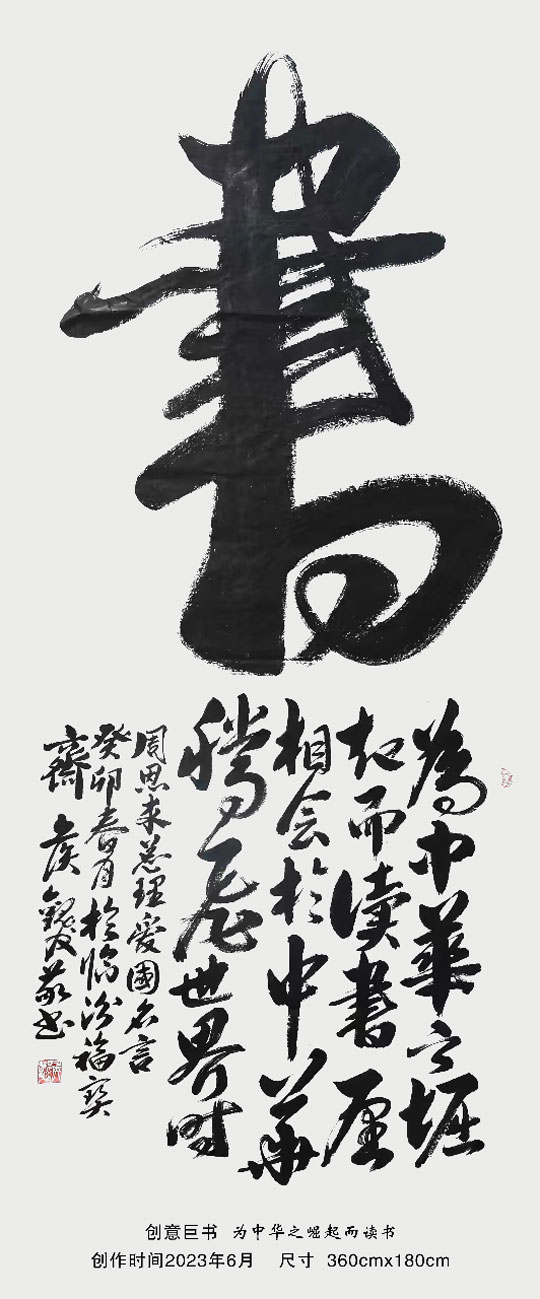 書
為中華之堀
起而读書愿
相会於中華
腾飛世界时
周恩来总理爱國名言
癸卯春月於临汾福寶
齋 侯 敬书
创意巨书 为中华之崛起而读书
创作时间2023年6月 尺寸 360cmx180cm